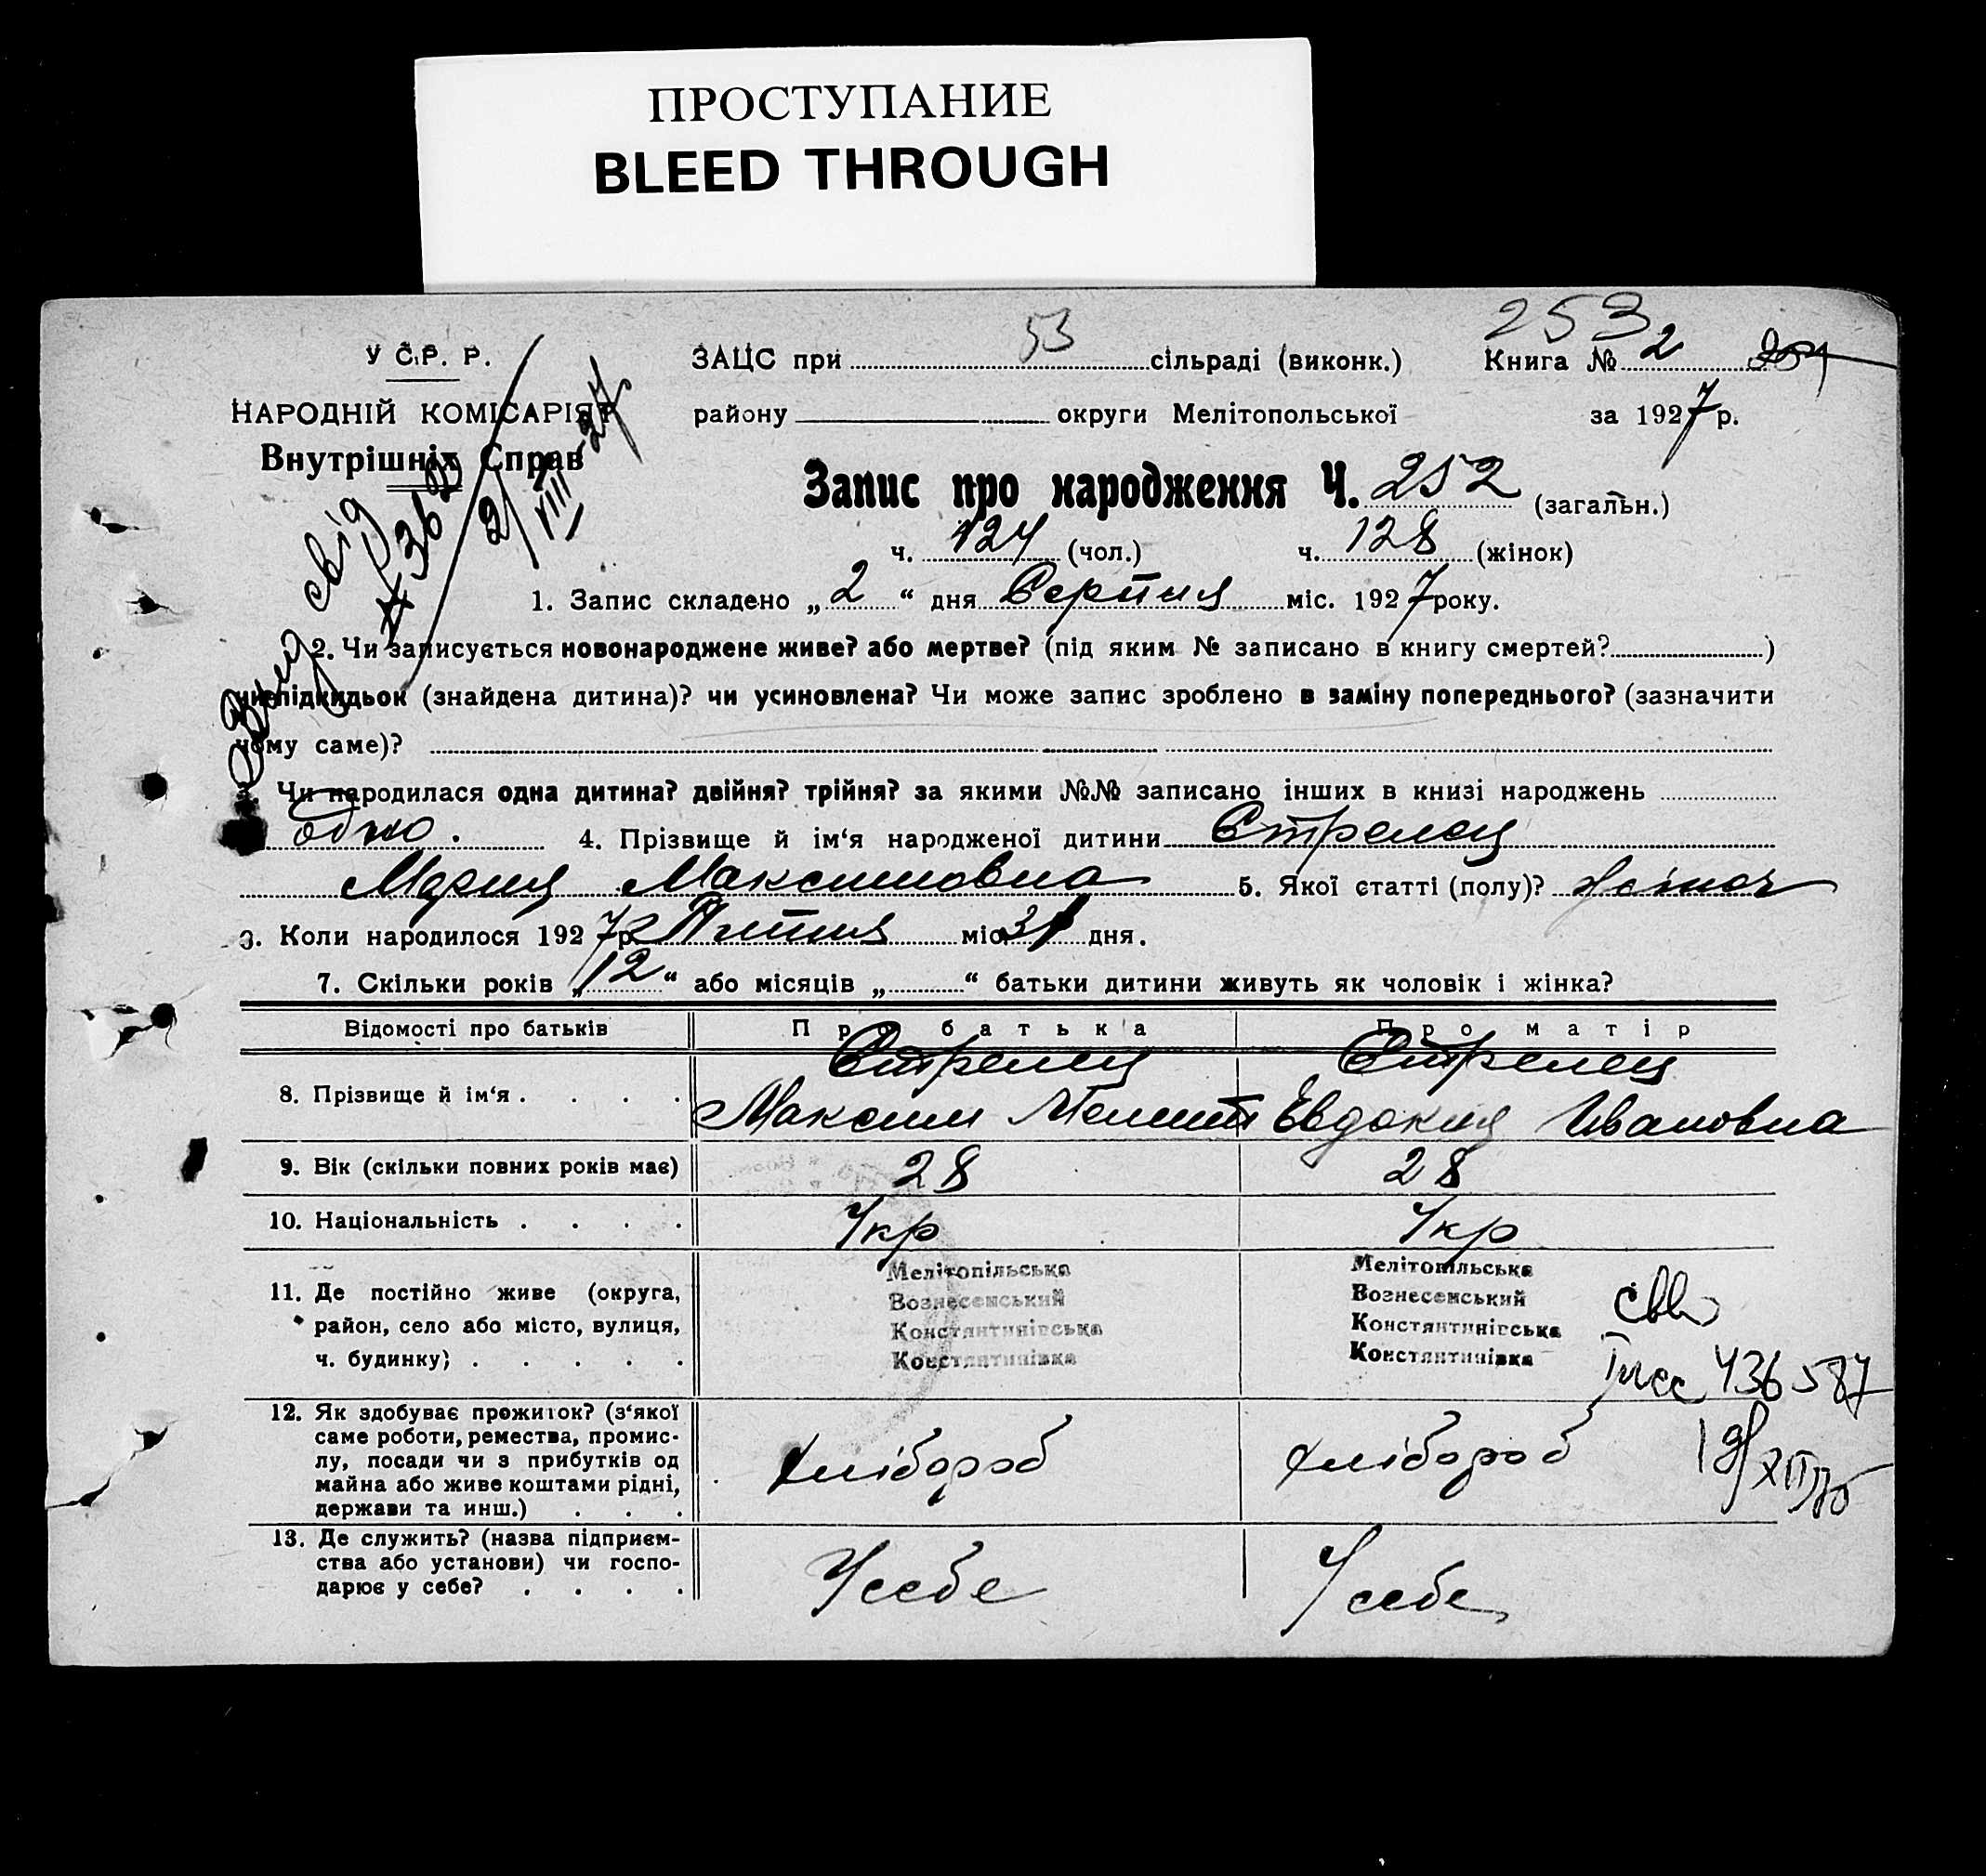 ПРОСТУПАНИЕ
BLEED THROUGH
253
У С.Р. Р.
НАРОДНІЙ КОМІСАРІЯТ
Внутрішніх Справ
ЗАЦС при 53 сільраді (виконк.) Книга № 2
району округи Мелітопольської за 1927 р.
Запис про народження Ч. 252 (загальн.)
ч. 124 (чол.) ч. 128 (жінок)
1. Запис складено „2“ дня Серпня міс. 1927 року.
2. Чи записується новонароджене живе? або мертве? (під яким № записано в книгу смертей? )
чи підкидьок (знайдена дитина)? чи усиновлена? Чи може запис зроблено в заміну попереднього? (зазначити
чому саме)?
Чи народилася одна дитина? двійня? трійня? за якими №№ записано інших в книзі народжень
одно. 4. Прізвище й ім‘я народженої дитини Стрелец
Мария Максимовна 5. Якої статті (полу)? жіноч
Коли народилося 1927 р. Липня міс. 31 дня.
7. Скільки років „12“ або місяців „ “ батьки дитини живуть як чоловік і жінка?
Відомості про батьків Про батька Про матір
8. Прізвище й ім‘я . . . .
Стрелец
Максим
Стрелец
Евдокия Ивановна
9. Вік (скільки повних років має) 28 28
10. Національність . . . . Укр Укр
11. Де постійно живе (округа,
район, село або місто, вулиця,
ч. будинку) . . . . .
Мелітопільська
Вознесенський
Констянтинівська
Констянтинівка
Мелітопільська
Вознесенський
Констянтинівська
Констянтинівка
436587
12. Як здобуває прожиток? (з‘якої
саме роботи, ремества, промис-
лу, посади чи з прибутків од
майна або живе коштами рідні,
держави та инш.) . . .
хлібороб хлібороб
13. Де служить? (назва підприєм-
ства або установи) чи госпо-
дарює у себе? . . . .
У себе У себе